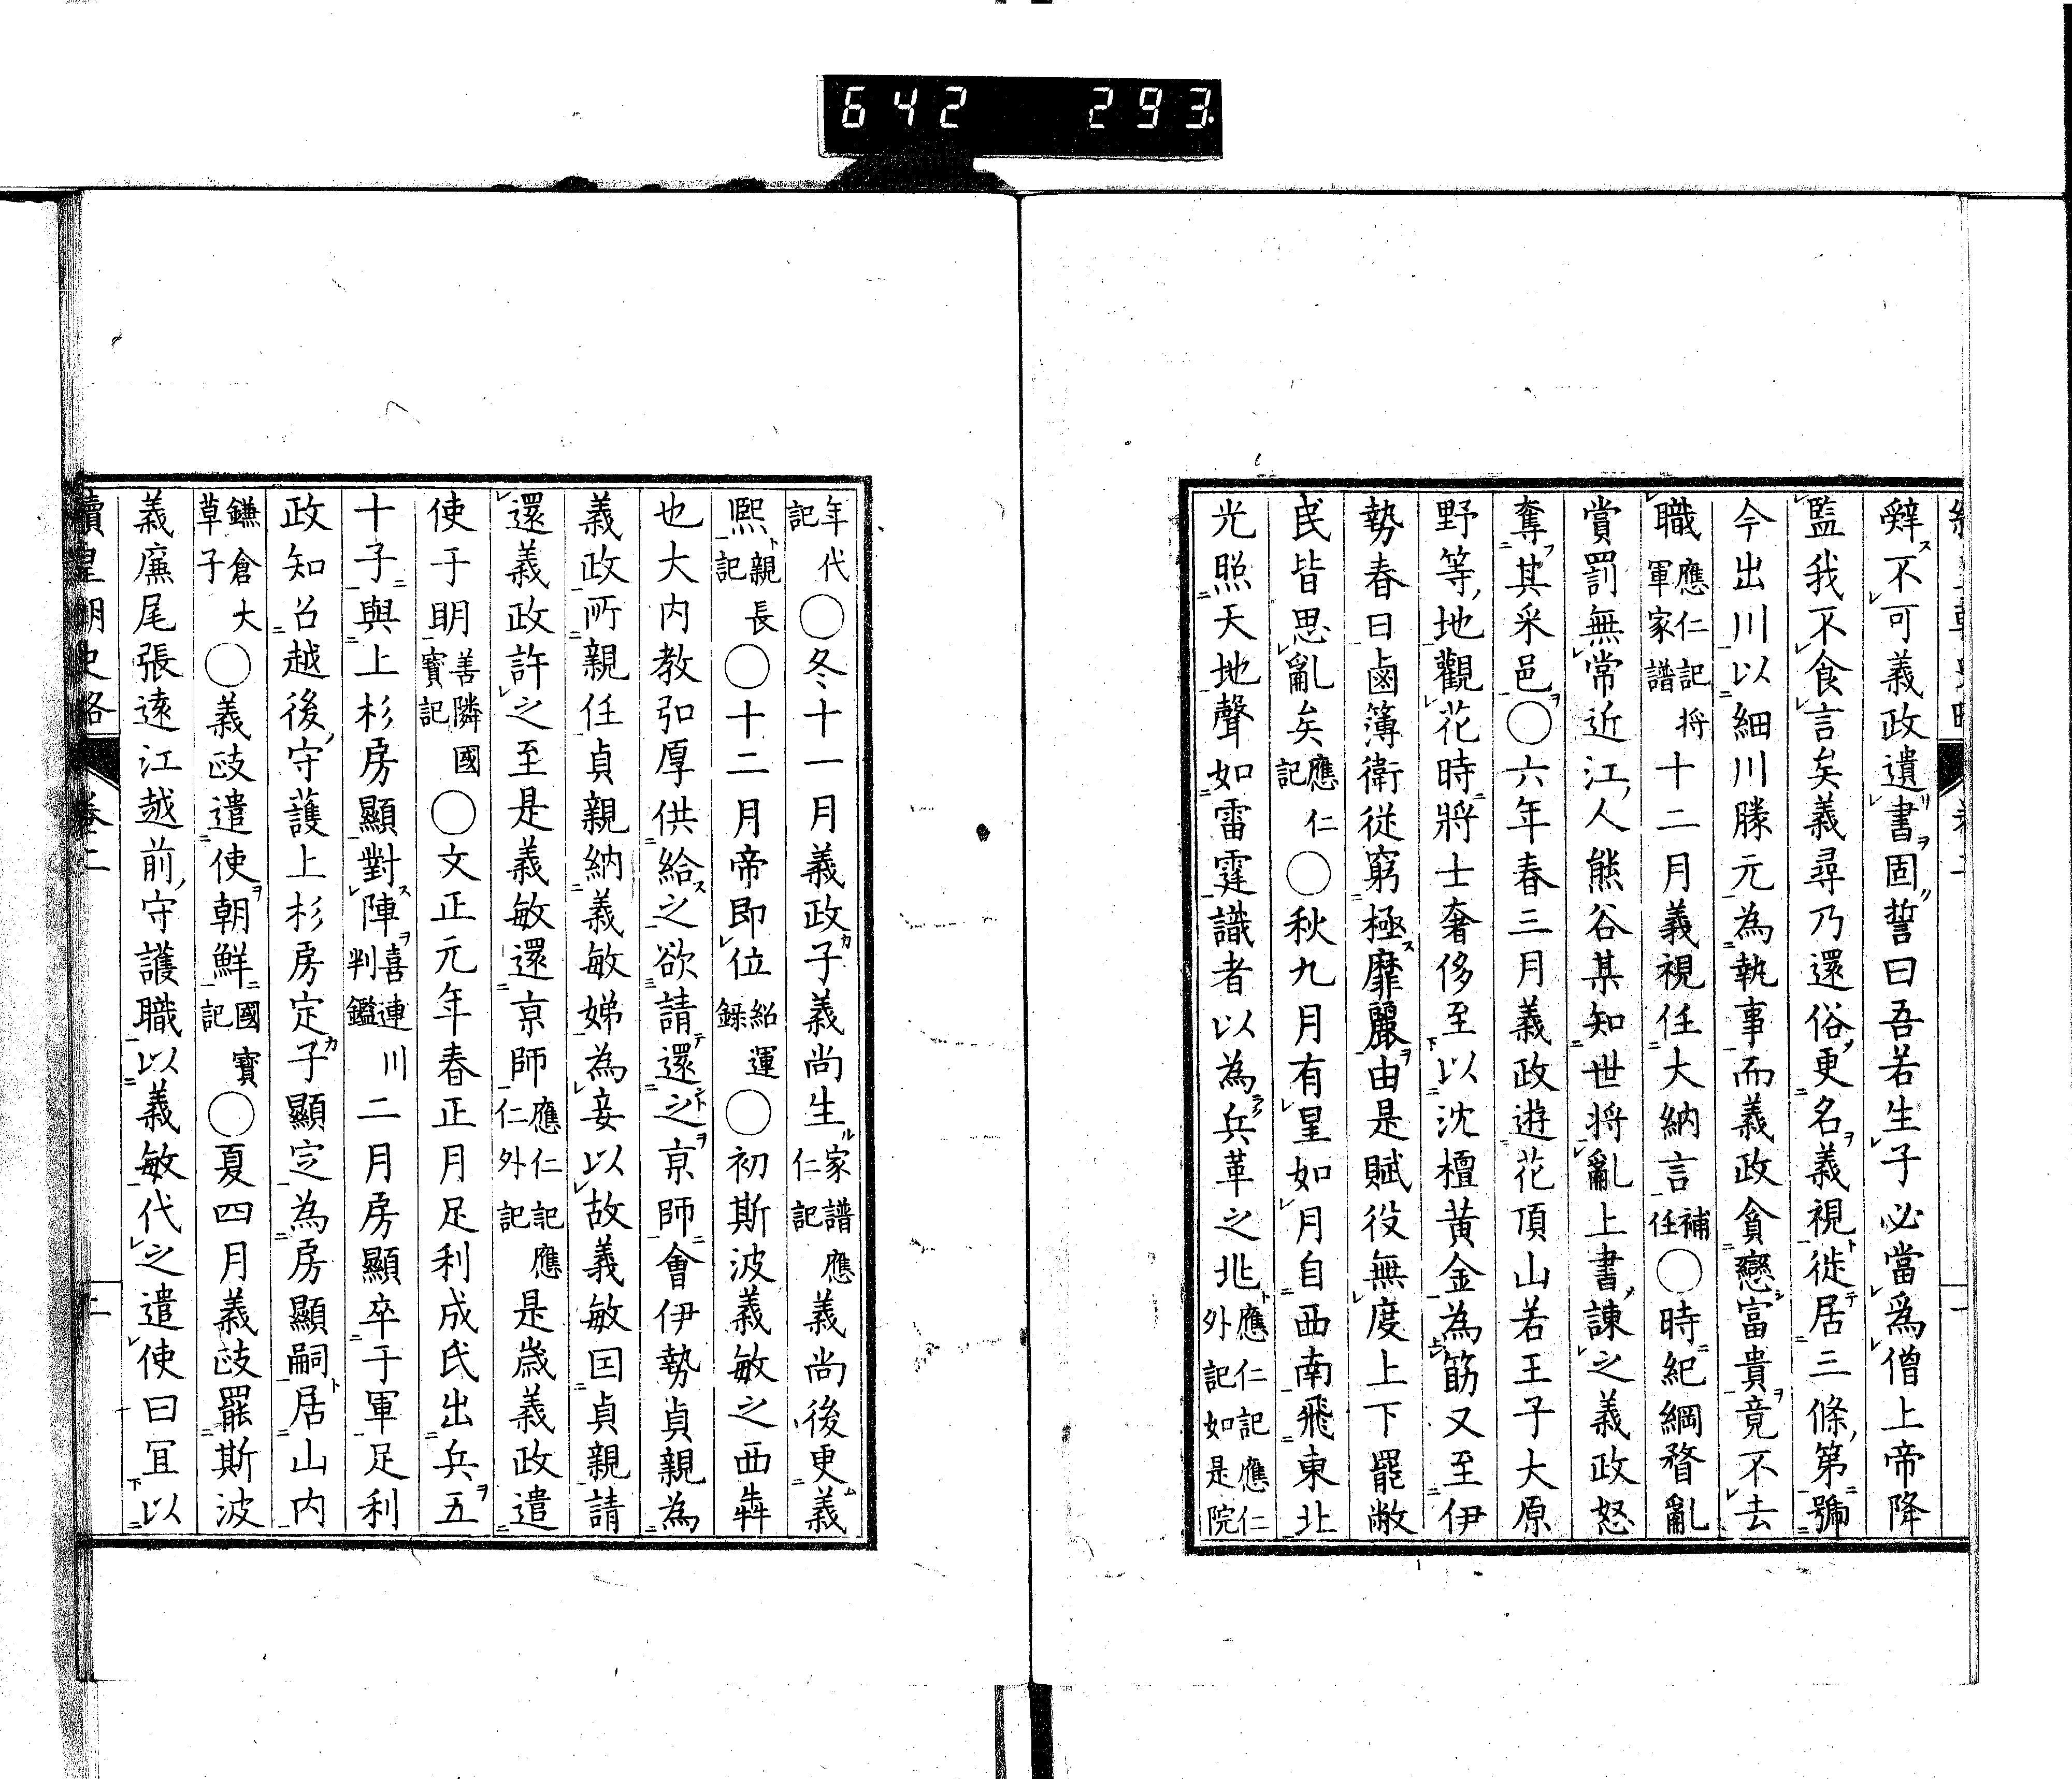 642 293
辭不可義政遺書固誓曰吾若生子必當爲僧上帝降
監我不食言矣義尋乃還俗更名義視徙居三條第號
今出川以細川勝元為執事而義政貪戀富貴竟不去
職應仁記将軍家譜十二月義視任大納言補任〇時紀綱瞀亂
賞罰無常近江人熊谷某知世将亂上書諫之義政怒
奪其采邑〇六年春三月義政遊花頂山若王子大原
野等地觀花時將士奢侈至以沈檀黃金為筯又至伊
勢春日鹵簿衛從窮極靡麗由是賦役無度上下罷敝
民皆思亂矣應仁記〇秋九月有星如月自西南飛東北
光照天地聲如雷霆識者以為兵革之兆應仁記應仁外記如是院
年代記〇冬十一月義政子義尚生家譜應仁記義尚後更義
熙親長記〇十二月帝即位紹運錄〇初斯波義敏之西犇
也大内教弘厚供給之欲請還之京師會伊勢貞親為
義政所親任貞親納義敏娣為妾以故義敏因貞親請
還義政許之至是義敏還京師應仁記應仁外記是歲義政遣
使于明善隣國寳記〇文正元年春正月足利成氏出兵五
十子與上杉房顯對陣喜連川判鑑二月房顯卒于軍足利
政知召越後守護上杉房定子顯定為房顯嗣居山内
鎌倉大草子〇義政遣使朝鮮國寳記〇夏四月義政罷斯波
義廉尾張遠江越前守護職以義敏代之遣使曰宜以
續皇朝史略 卷二 二